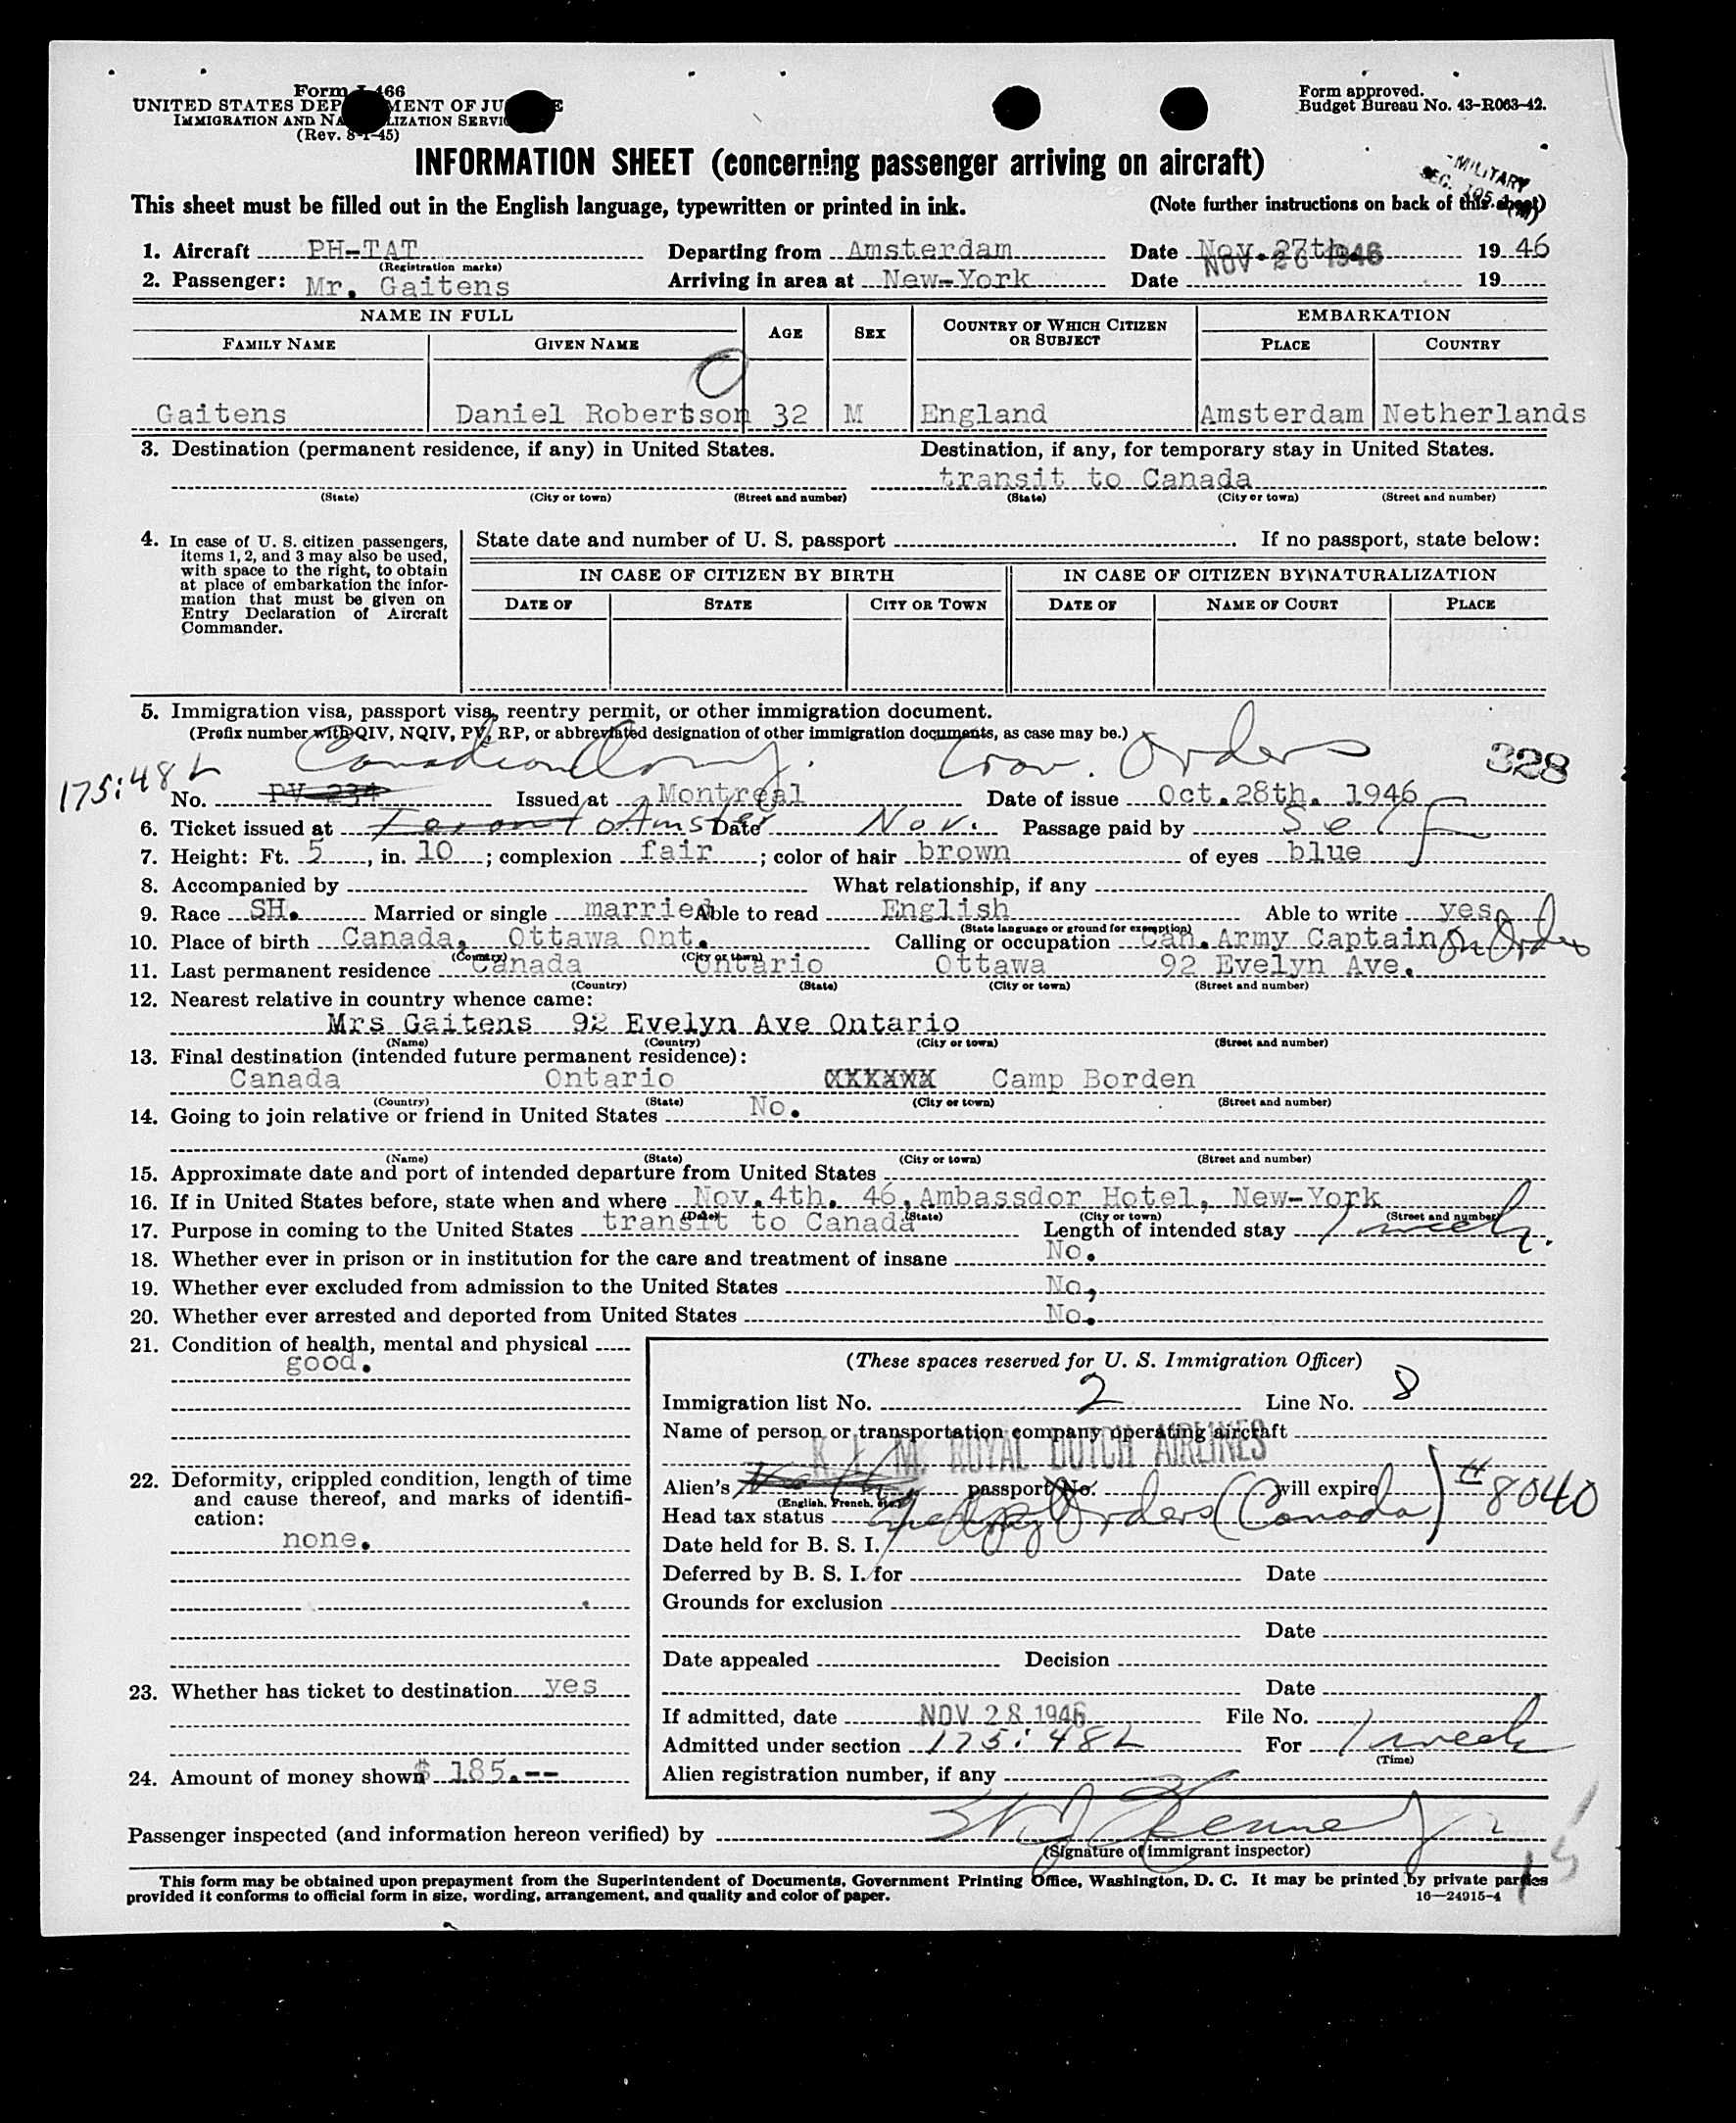 Form I-466
UNITED STATES DEPARTMENT OF JUSTICE
IMMIGRATION AND NATURALIZATION SERVICE
(Rev. 8-1-45)
Form approved.
Budget Bureau No. 43-R063-42.
INFORMATION SHEET (concerning passenger arriving on aircraft)
MILITARY
SEC.
This sheet must be filled out in the English language, typewritten or printed in ink. (Note further instructions on back of this sheet)
1. Aircraft PH-TAT Departing from Amsterdam Date Nov. 27th. 1946
(Registration marks)
NOV 26 1946
2. Passenger: Mr. Gaitens Arriving in area at New-York Date 19
NAME IN FULL AGE SEX COUNTRY OF WHICH CITIZEN OR SUBJECT EMBARKATION
FAMILY NAME GIVEN NAME PLACE COUNTRY
Gaitens Daniel Robertson 32 M England Amsterdam Netherlands
3. Destination (permanent residence, if any) in United States. Destination, if any, for temporary stay in United States.
transit to Canada
(State) (City or town) (Street and number) (State) (City or town) (Street and number)
4. In case of U. S. citizen passengers, items 1, 2, and 3 may also be used, with space to the right, to obtain at place of embarkation the information that must be given on Entry Declaration of Aircraft Commander.
State date and number of U. S. passport . If no passport, state below:
IN CASE OF CITIZEN BY BIRTH IN CASE OF CITIZEN BY NATURALIZATION
DATE OF STATE CITY OR TOWN DATE OF NAME OF COURT PLACE
5. Immigration visa, passport visa, reentry permit, or other immigration document.
(Prefix number with QIV, NQIV, PV, RP, or abbreviated designation of other immigration documents, as case may be.)
Canadian Army. Trav. Orders 328
175:48L
No. PV 234 Issued at Montreal Date of issue Oct.28th. 1946
6. Ticket issued at Toronto Amster Date Nov. Passage paid by Self
7. Height: Ft. 5, in. 10; complexion fair; color of hair brown of eyes blue
8. Accompanied by What relationship, if any
9. Race SH. Married or single married Able to read English Able to write yes
(State language or ground for exemption)
10. Place of birth Canada, Ottawa Ont. Calling or occupation Can. Army Captain On Orders
(Country) (City or town)
11. Last permanent residence Canada Ontario Ottawa 92 Evelyn Ave.
(Country) (State) (City or town) (Street and number)
12. Nearest relative in country whence came:
Mrs Gaitens 92 Evelyn Ave Ontario
(Name) (Country) (City or town) (Street and number)
13. Final destination (intended future permanent residence):
Canada Ontario XXXXXX Camp Borden
(Country) (State) (City or town) (Street and number)
14. Going to join relative or friend in United States No.
(Name) (State) (City or town) (Street and number)
15. Approximate date and port of intended departure from United States
16. If in United States before, state when and where Nov.4th. 46, Ambassdor Hotel, New-York
(Date) (State) (City or town) (Street and number)
17. Purpose in coming to the United States transit to Canada Length of intended stay 1 week.
18. Whether ever in prison or in institution for the care and treatment of insane No.
19. Whether ever excluded from admission to the United States No,
20. Whether ever arrested and deported from United States No.
21. Condition of health, mental and physical
good.
22. Deformity, crippled condition, length of time and cause thereof, and marks of identification:
none.
23. Whether has ticket to destination yes
24. Amount of money shown $ 185.--
(These spaces reserved for U. S. Immigration Officer)
Immigration list No. 2 Line No. 8
Name of person or transportation company operating aircraft
K. L. M. ROYAL DUTCH AIRLINES
Alien's passport No. will expire #8040
(English, French, etc.)
Head tax status Orders (Canada)
Date held for B. S. I.
Deferred by B. S. I. for Date
Grounds for exclusion
Date
Date appealed Decision
Date
If admitted, date NOV 28 1946 File No.
Admitted under section 175:48L For 1 week
(Time)
Alien registration number, if any
Passenger inspected (and information hereon verified) by
(Signature of immigrant inspector)
This form may be obtained upon prepayment from the Superintendent of Documents, Government Printing Office, Washington, D. C. It may be printed by private parties
provided it conforms to official form in size, wording, arrangement, and quality and color of paper. 16—24915-4